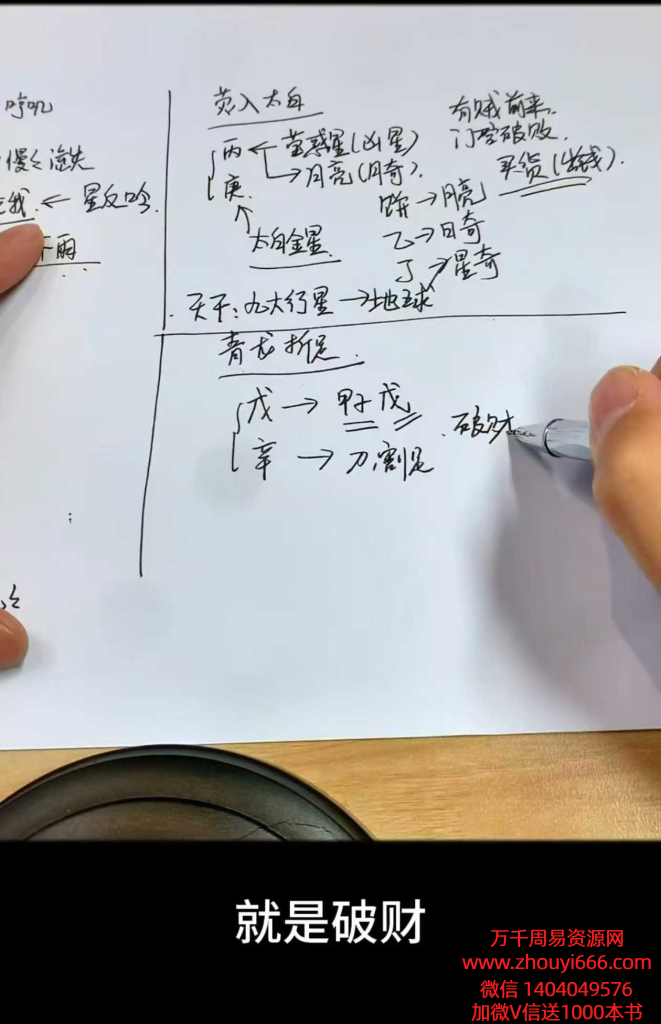 哼叽
慢く消失
我 ← 星反吟
下雨
荧入太白
丙 ← 荧惑星(凶星)
→ 月亮(月奇)
庚
太白金星
有贼前来
门户破败
买货(出钱)
饼 → 月亮
乙 → 日奇
丁 → 星奇
天干:九大行星 → 地球
青龙折足
戊 → 甲子戊
辛 → 刀割足
破财
就是破财
万千周易资源网
www.zhouyi666.com
微信 1404049576
加微V信送1000本书